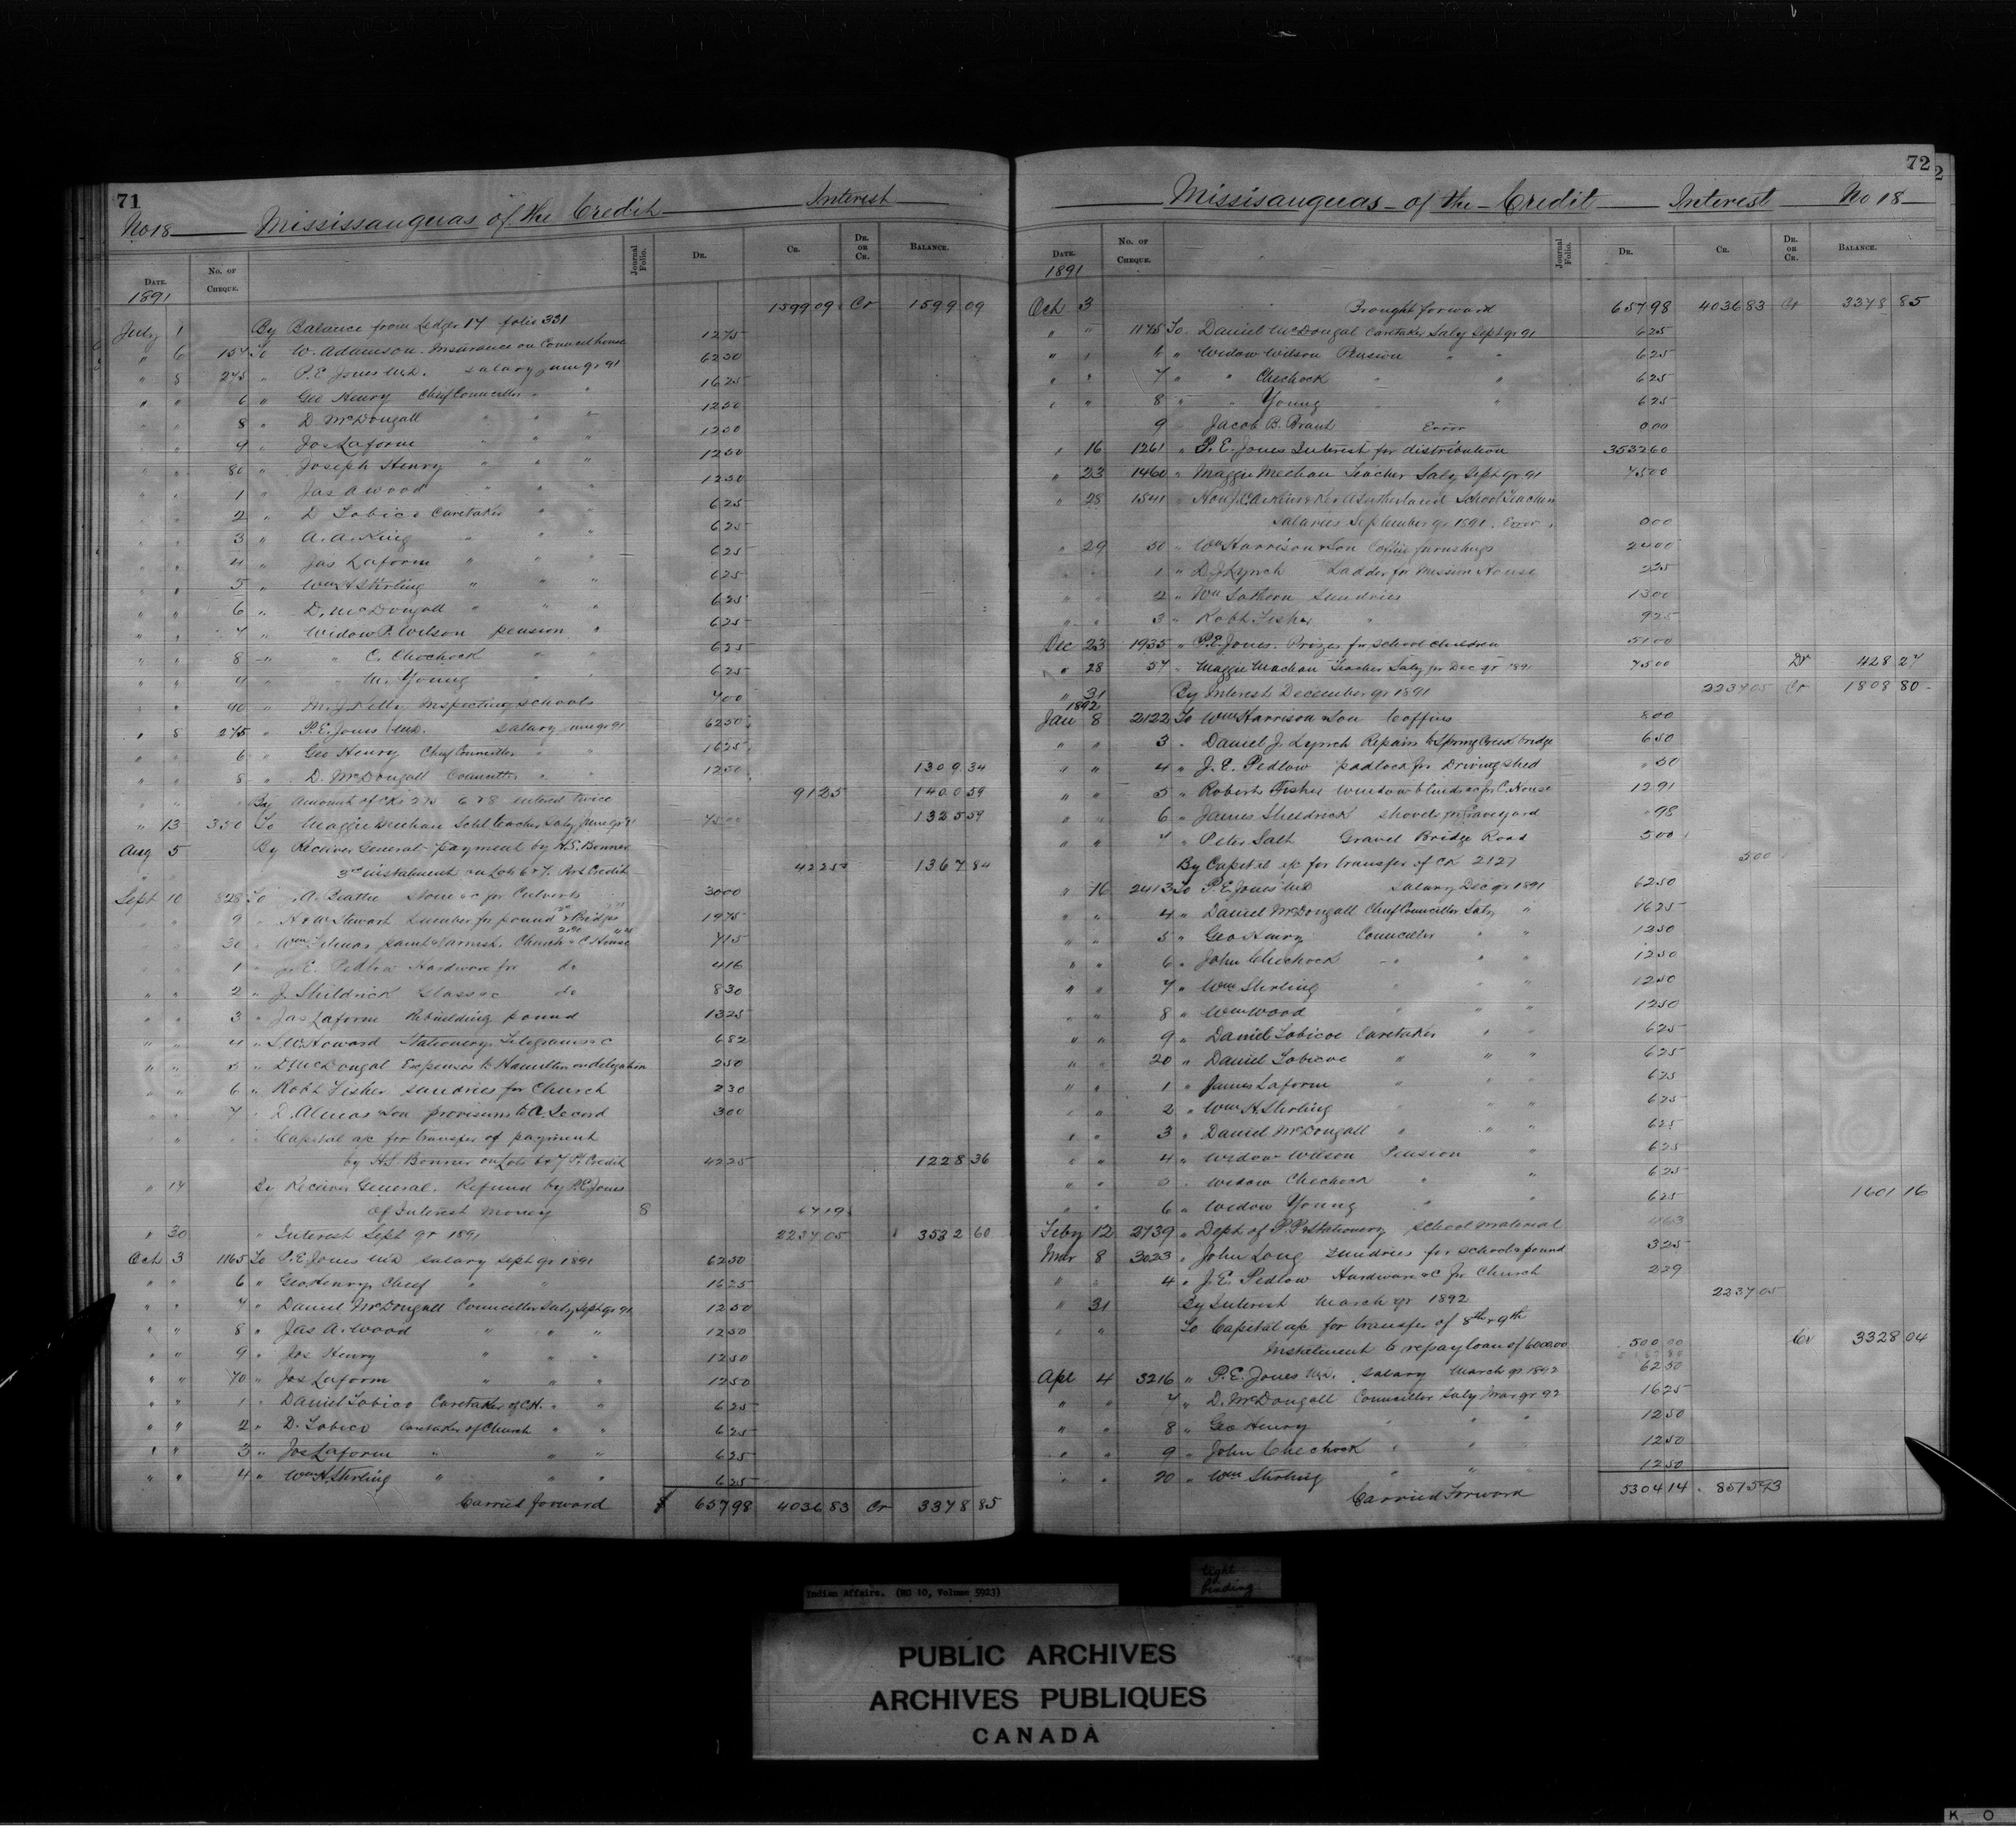 71
No 18 Mississauguas of the Credit Interest
DATE. No. of CHEQUE. Journal Folio. DR. CR. DR. OR CR. BALANCE.
1891
July 1 By Balance from Ledger 14 folio 331 1599 09 Cr 1599 09
" 6 154 To W. Adamson Insurance on Council house 12 75
" 8 275 " P.E. Jones M.D. Salary June qr 91 62 50
" " 6 " Geo Henry Chief Councillor " 16 25
" " 8 " D McDougall " " " 12 50
" " 9 " Jos Laform " " " 12 50
" " 80 " Joseph Henry " " " 12 50
" " 1 " Jas A Wood " " " 12 50
" " 2 " D Tobico Caretaker " " 6 25
" " 3 " A. A. King " " " 6 25
" " 4 " Jas Laform " " " 6 25
" " 5 " Wm H Stirling " " " 6 25
" " 6 " D. McDougall " " " 6 25
" " 7 " Widow P. Wilson pension " 6 25
" " 8 " " C. Chechock " " 6 25
" " 9 " " M. Young " " 6 25
90 " M. J. Kelly Inspecting schools 4 00
" 8 275 " P.E. Jones M.D. Salary June qr 91 62 50
6 " Geo Henry Chief Councillor " " 16 25
" " 8 " D. McDougall Councillor " " 12 50 1309 34
" " By amount of cks 275 6 & 8 entered twice 91 25 1400 59
" 13 350 To Maggie Meehan Schl teacher Saly June qr 91 75 00 1325 59
Aug 5 By Receiver General payment by H.S. Bonner
3rd instalment on Lots 6 & 7. Port Credit 42 25 1367 84
Sept 10 828 To A. Beattie Stone &c for Culverts 30 00
9 " H & W Stewart Lumber for pound & Bridges 19 75
30 " Wm Filmar paint & varnish Church & C House 7 15
1 " J. E. Pedlow Hardware for do 4 16
" " 2 " J. Shildrick Glass &c do 8 30
" " 3 " Jas Laform Rebuilding pound 13 25
" " 4 " S.W. Howard Stationery Telegrams &c 6 82
" " 5 " D McDougal Expenses to Hamilton on delegation 2 50
" " 6 " Robt Fisher Sundries for Church 2 30
" " 7 " D. Almas & Son provisions to A. Secord 3 00
" " " Capital a/c for transfer of payment
by H.S. Bonner on Lots 6 & 7 Pt Credit 42 25 1228 36
" 14 By Receiver General. Refund by P.E. Jones
of Interest Money 8 67 19
" 30 " Interest Sept qr 1891 2237 05 3532 60
Oct 3 1165 To P.E. Jones M.D. Salary Sept qr 1891 62 50
" " 6 " Geo Henry, Chief " " 16 25
" " 7 " Daniel McDougall Councillor Saly Sept qr 91 12 50
" " 8 " Jas A. Wood " " " 12 50
" " 9 " Jos Henry " " " 12 50
" " 70 " Jos Laform " " " 12 50
" " 1 " Daniel Tobico Caretaker of C.H. " " 6 25
" " 2 " D. Tobico Caretaker of Church " " 6 25
" " 3 " Jos Laform " " " 6 25
" " 4 " Wm H. Stirling " " " 6 25
Carried forward $ 657 98 4036 83 Cr 3378 85
72
Missisauguas of the Credit Interest No 18
DATE. No. of CHEQUE. Journal Folio. DR. CR. DR. OR CR. BALANCE.
1891
Oct 3 Brought forward 657 98 4036 83 Cr 3378 85
" " 1175 To Daniel McDougal Caretaker Saly Sept qr 91 6 25
" " 6 " Widow Wilson Pension " " 6 25
" " 7 " " Chechock " " 6 25
" " 8 " " Young " " 6 25
9 Jacob B. Brant Error 0 00
" 16 1261 " P. E. Jones Interest for distribution 3532 60
" 23 1460 " Maggie Meehan Teacher Saly Sept qr 91 75 00
" 28 1541 " Hon J.C. Aikins & Rev A Sutherland School Teachers
Salaries September qr 1891. Error 0 00
" 29 50 " Wm Harrison & Son Coffin furnishings 24 00
1 " D. J. Lynch Ladder for Mission House 2 25
" " 2 " Wm Sothern Sundries 13 00
" " 3 " Robt Fisher " 9 25
Dec 23 1935 " P.E. Jones. Prizes for school children 51 00
" 28 57 " Maggie Machan Teacher Saly for Dec qr 1891 75 00 Dr 428 27
" 31 By Interest December qr 1891 2237 05 Cr 1808 80
1892
Jan 8 2122 To Wm Harrison & Son Coffins 8 00
" " 3 " Daniel J. Lynch Repairs to Spring Creek bridge 6 50
" " 4 " J. E. Pedlow padlock for Driving shed 50
" " 5 " Roberts Fisher Window blinds &c for C. House 12 91
" " 6 " James Sheldrick shovels for Graveyard 98
" " 7 " Peter Salt Gravel Bridge Road 5 00
By Capital a/c for transfer of CK 2127 5 00
" 16 2413 To P.E. Jones M.D Salary Dec qr 1891 62 50
" " 4 " Daniel McDougall Chief Councillor Saly " 16 25
" " 5 " Geo Henry Councillor " " 12 50
" " 6 " John Chechock " " " 12 50
" " 7 " Wm Stirling " " " 12 50
" " 8 " Wm Wood " " " 12 50
" " 9 " Daniel Tobicoe Caretaker " " 6 25
" " 20 " Daniel Tobicoe " " " 6 25
" " 1 " James Laform " " " 6 25
" " 2 " Wm H. Stirling " " " 6 25
" " 3 " Daniel McDougall " " " 6 25
" " 4 " Widow Wilson Pension " 6 25
" " 5 " Widow Chechock " " 6 25
" " 6 " Widow Young " " 6 25 1601 16
Feby 12 2739 " Dept of P.P. & Stationery School material
Mar 8 3023 " John Long Sundries for school & pound 3 25
" " 4 " J. E. Pedlow Hardware &c for Church 2 39
" 31 By Interest March qr 1892 2237 05
" " To Capital a/c for transfer of 8th & 9th
Instalment to repay loan of 6000.00 500 00 Cr 3328 04
Apl 4 3216 " P.E. Jones M.D. Salary March qr 1892 62 50
" " 7 " D. McDougall Councillor Saly Mar qr 92 16 25
" " 8 " Geo Henry " " 12 50
" " 9 " John Chechock " " 12 50
" " 20 " Wm Stirling " " 12 50
Carried Forward 5304 14 8515 93
Indian Affairs. (RG 10, Volume 5923)
tight
binding
PUBLIC ARCHIVES
ARCHIVES PUBLIQUES
CANADA
K O